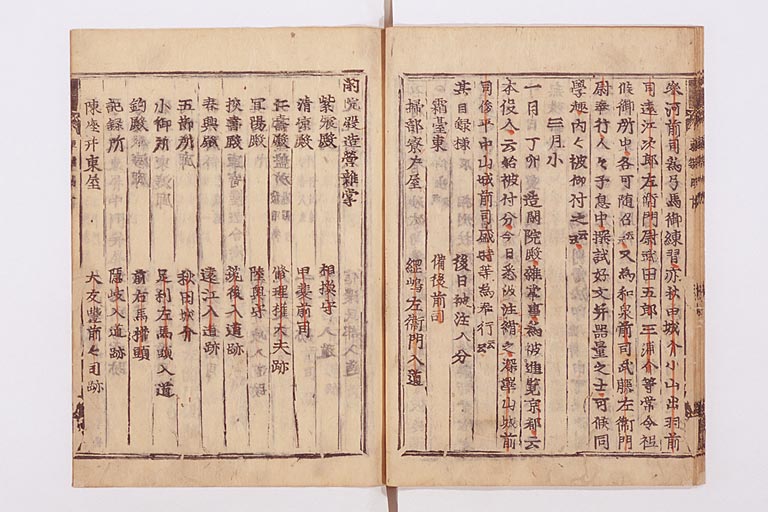 參河前司爲弓馬御練習亦秋田城介小山出羽前
司遠江次郎左衛門尉武田五郎三浦介等常令祖
候御所中各可随召又爲和泉前司武藤左衛門
尉奉行人々子息中撰試好文并器量之士可候同
學趣内々被仰付之云云
三月小
一日丁卯 造閑院殿雜掌事爲被進覧京都云
本役人云始被付分今日悉被注緒之深澤山城前
司俊平中山城前司盛時等爲奉行云云
其目録様 後日被注入分
霜臺東 備後前司
掃部寮左屋 經嶋左衛門入道
閑院殿造營雜掌
紫宸殿 相模守
清凉殿 甲斐前司
仁壽殿 脩理權大夫跡
宜陽殿 陸奥守
校書殿 筑後入道跡
春興殿 遠江入道跡
五節所 秋田城介
小御所 足利左馬頭入道
釣殿 前右馬權頭
記録所 隠岐入道跡
陳座并東屋 大友豊前々司跡